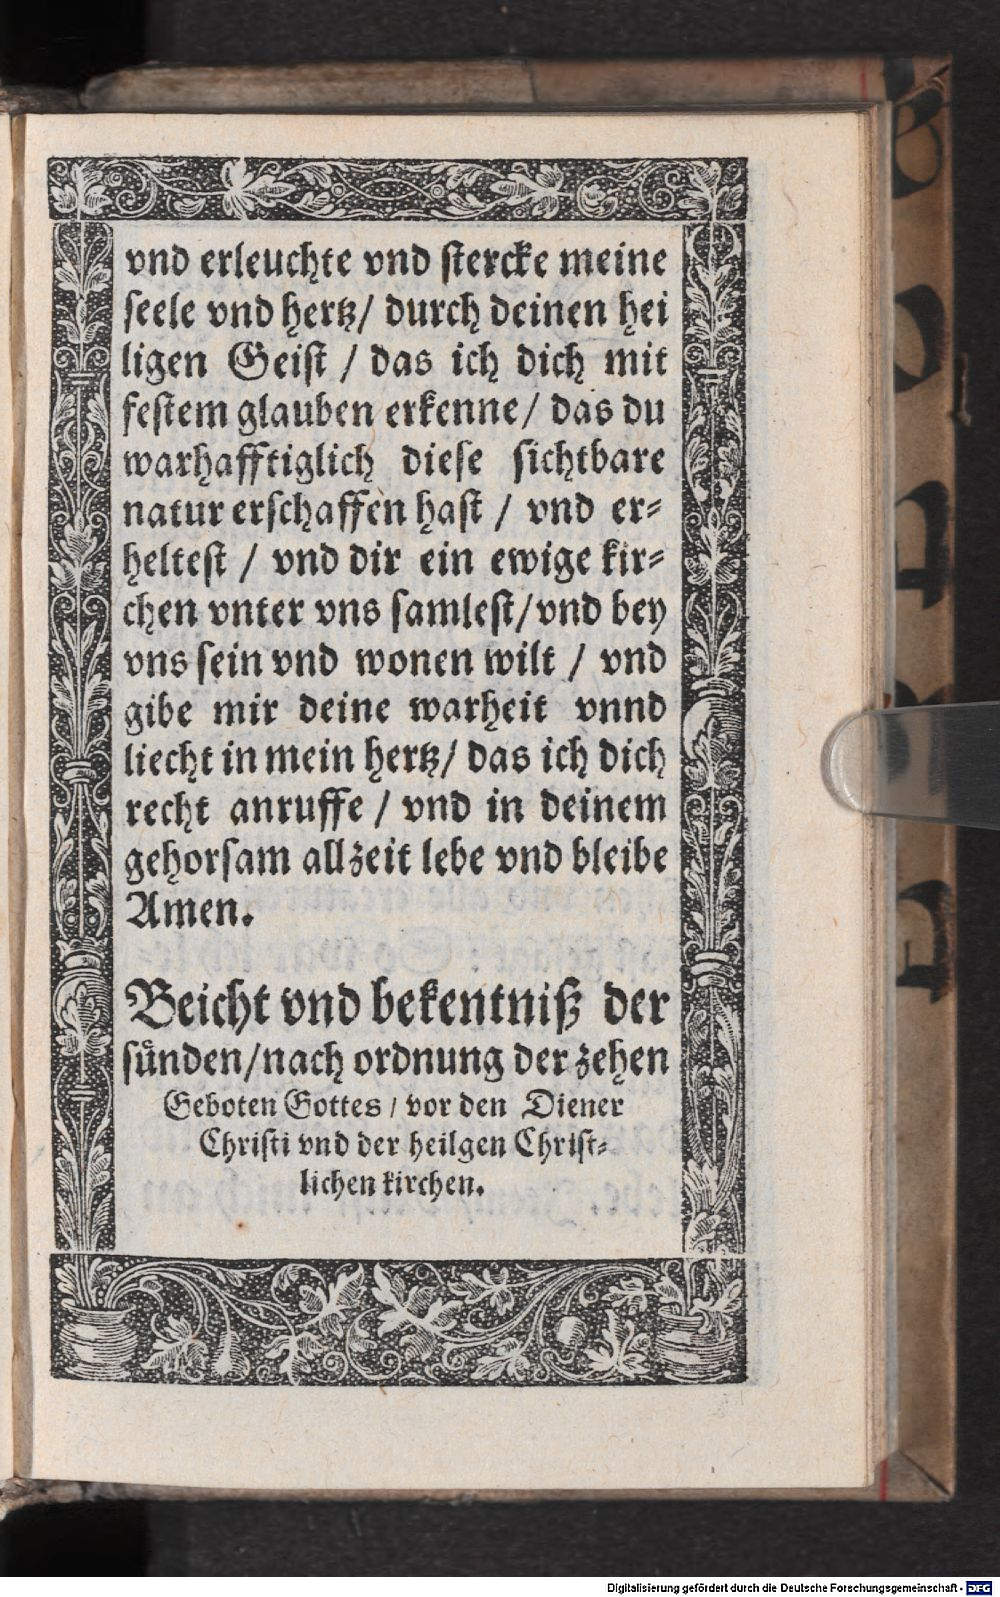 vnd erleuchte vnd stercke meine
seele vnd hertz/ durch deinen hei
ligen Geist / das ich dich mit
festem glauben erkenne/ das du
warhafftiglich diese sichtbare
natur erschaffen hast / vnd er=
heltest / vnd dir ein ewige kir=
chen vnter vns samlest/vnd bey
vns sein vnd wonen wilt / vnd
gibe mir deine warheit vnnd
liecht in mein hertz/ das ich dich
recht anruffe / vnd in deinem
gehorsam allzeit lebe vnd bleibe
Amen.
Beicht vnd bekentniß der
sünden/nach ordnung der zehen
Geboten Gottes / vor den Diener
Christi vnd der heilgen Christ=
lichen kirchen.
Digitalisierung gefördert durch die Deutsche Forschungsgemeinschaft - DFG